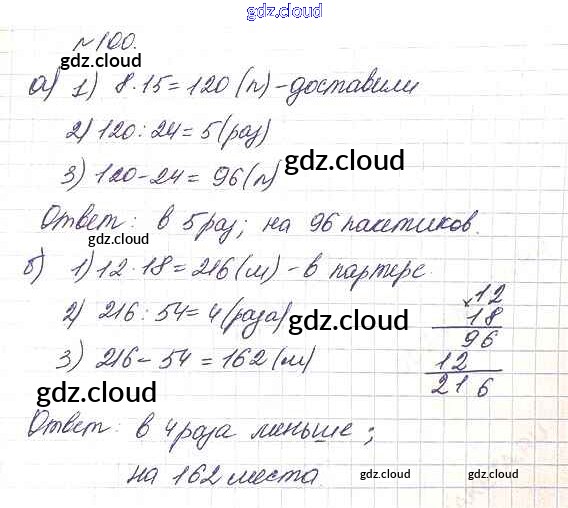 gdz.cloud
№100.
gdz.cloud
а) 1) 8·15=120(п)-доставили
gdz.cloud
2) 120:24=5(раз)
3) 120-24=96(п)
gdz.cloud
Ответ: в 5 раз; на 96 пакетиков.
gdz.cloud
б) 1) 12·18=216(м)-в партере.
2) 216:54=4(раза)
gdz.cloud
×12
18
96
12
216
3) 216-54=162(м)
gdz.cloud
Ответ: в 4 раза меньше;
на 162 места
gdz.cloud
gdz.cloud